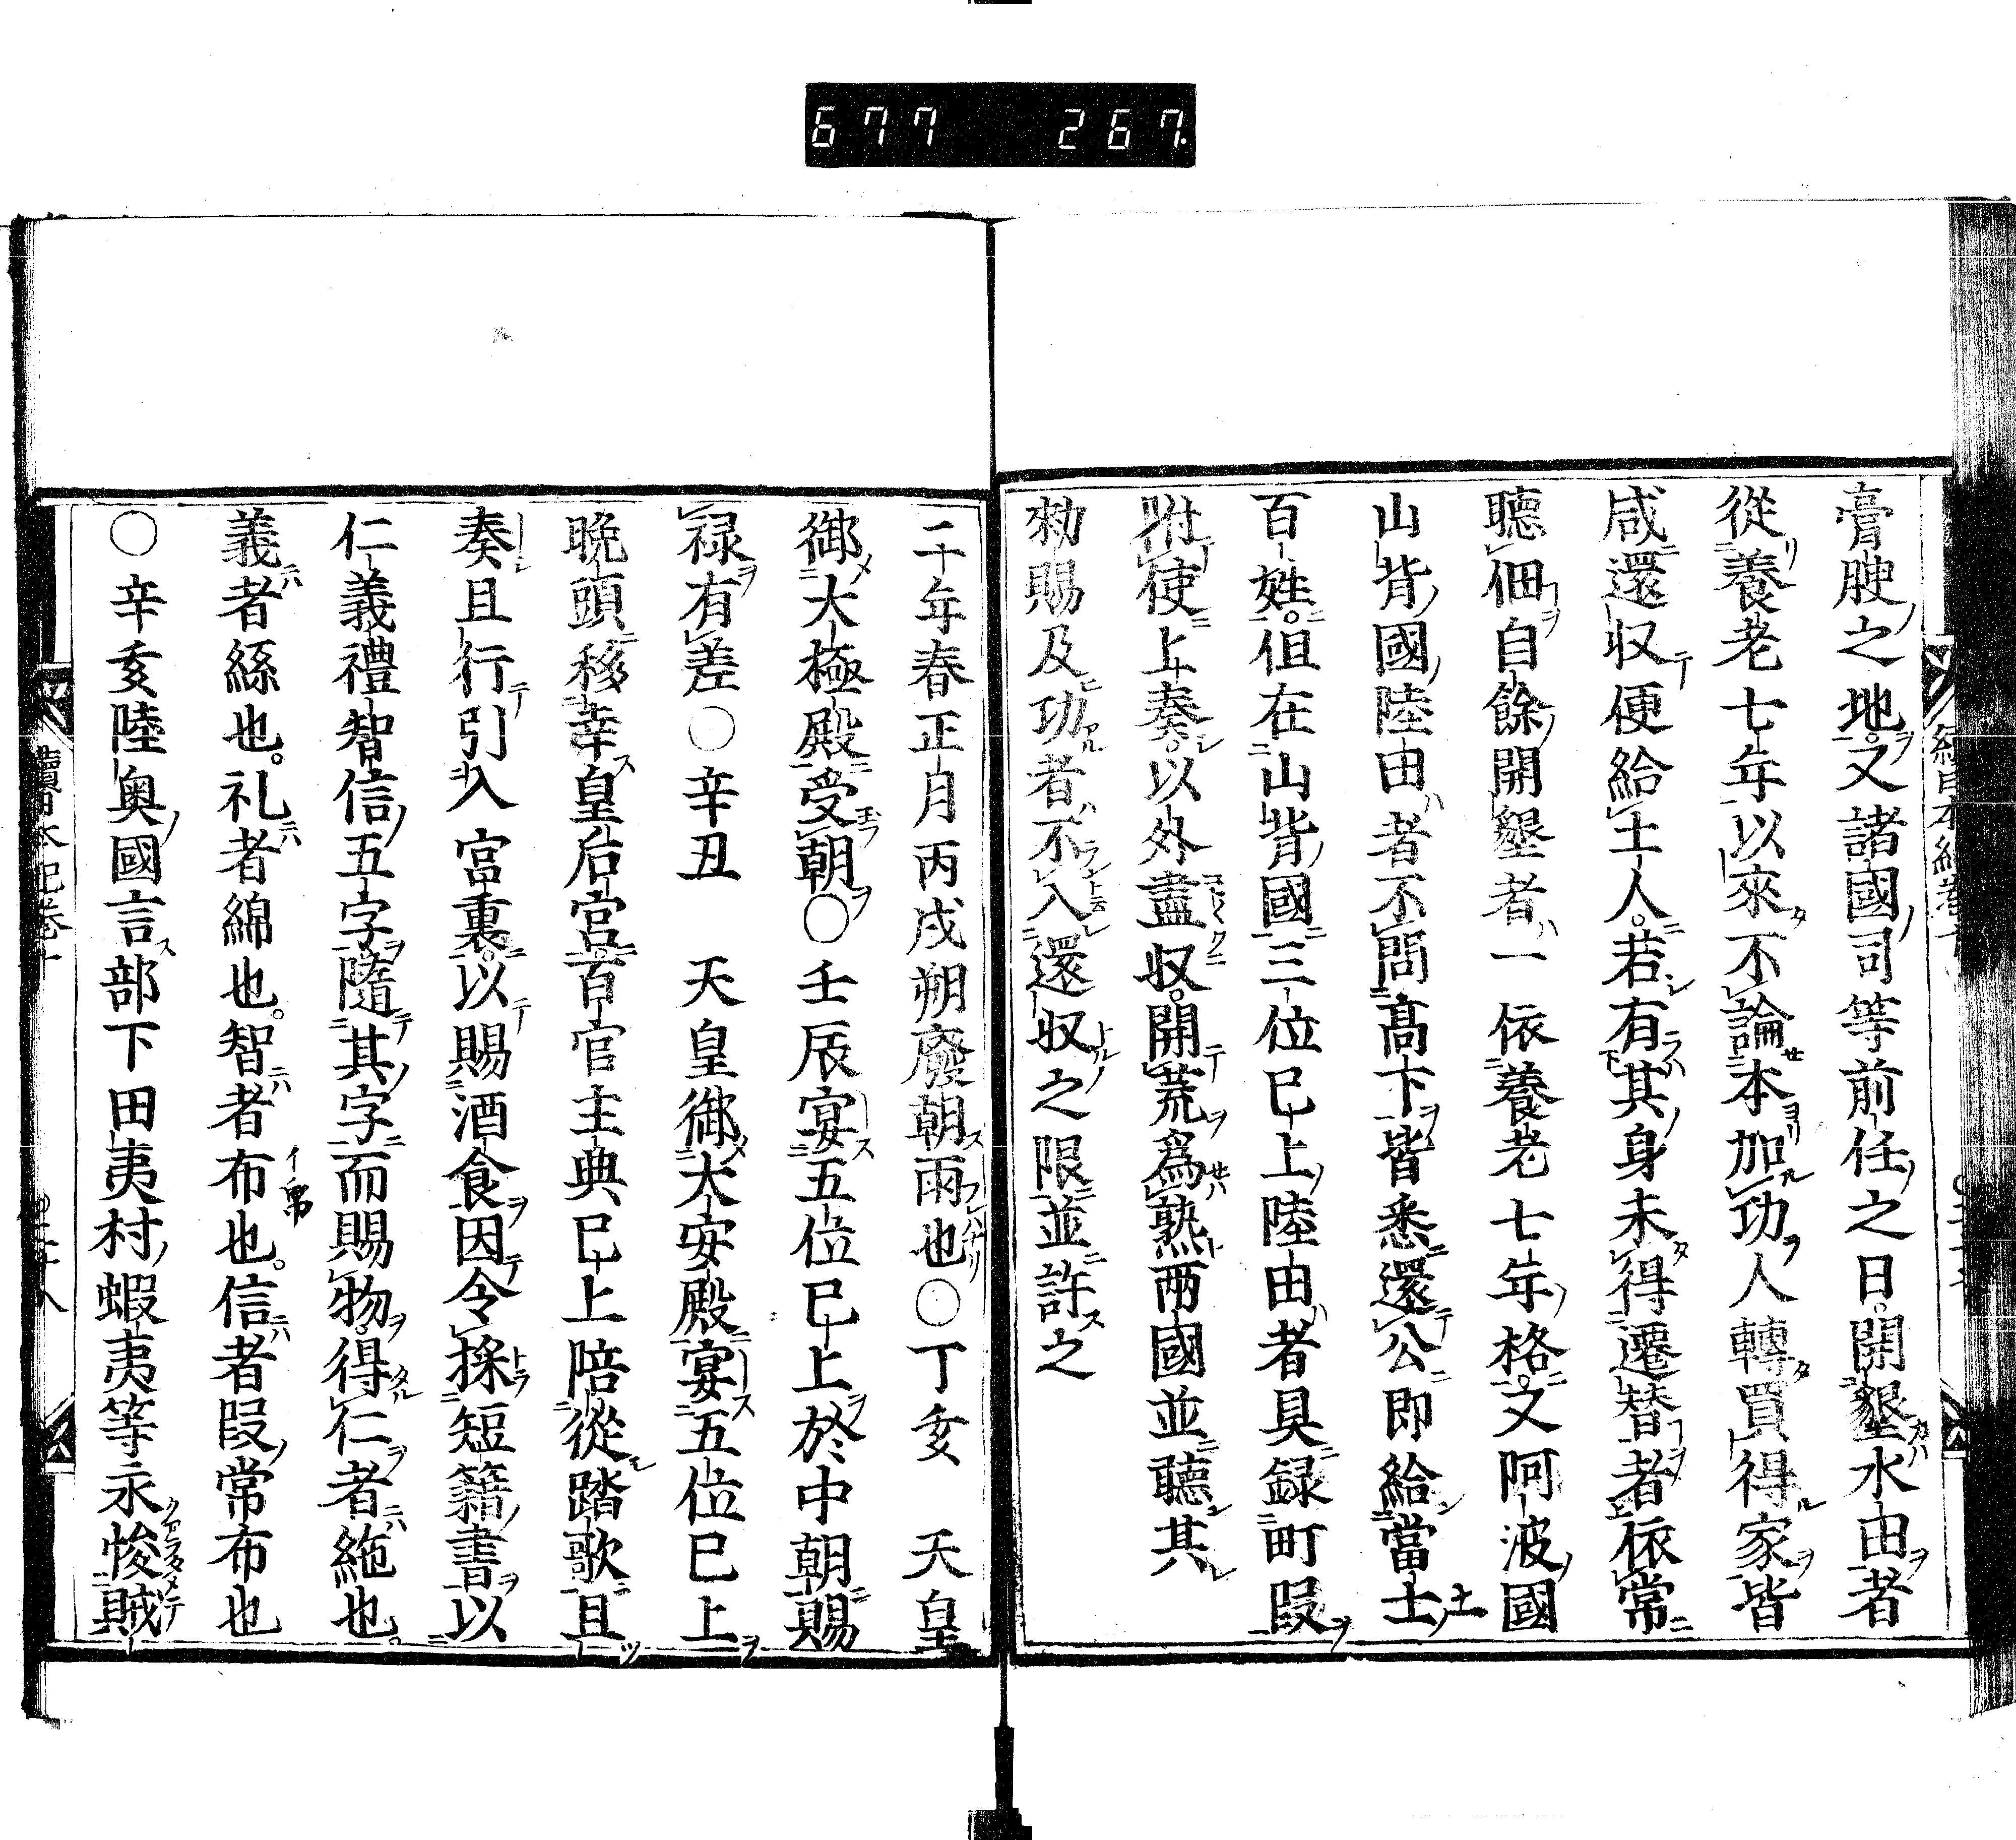 677 267.
膏腴之地。又諸國司等前任之日。開墾水田者
從養老七年以來不論本加功人轉買得家皆
咸還収便給土人。若有其身未得遷替者依常
聽佃自餘開墾者一依養老七年格。又阿波國
山背國陸田者不問高下皆悉還公即給當土
百姓。但在山背國三位已上陸田者具録町段
附使上奏。以外盡収。開荒爲熟兩國並聽其
勅賜及功者不入還収之限並許之
二十年春正月丙戌朔廢朝雨也○丁亥 天皇
御大極殿受朝○壬辰宴五位已上於中朝賜
禄有差○辛丑 天皇御大安殿宴五位已上
晩頭移幸皇后宮百官主典已上陪從踏歌且
奏且行引入宮裏。以賜酒食因令採短籍書以
仁義禮智信五字隨其字而賜物。得仁者絁也。
義者絲也。礼者綿也。智者布也。信者段常布也
○辛亥陸奥國言部下田夷村蝦夷等永悛賊
續日本紀卷十